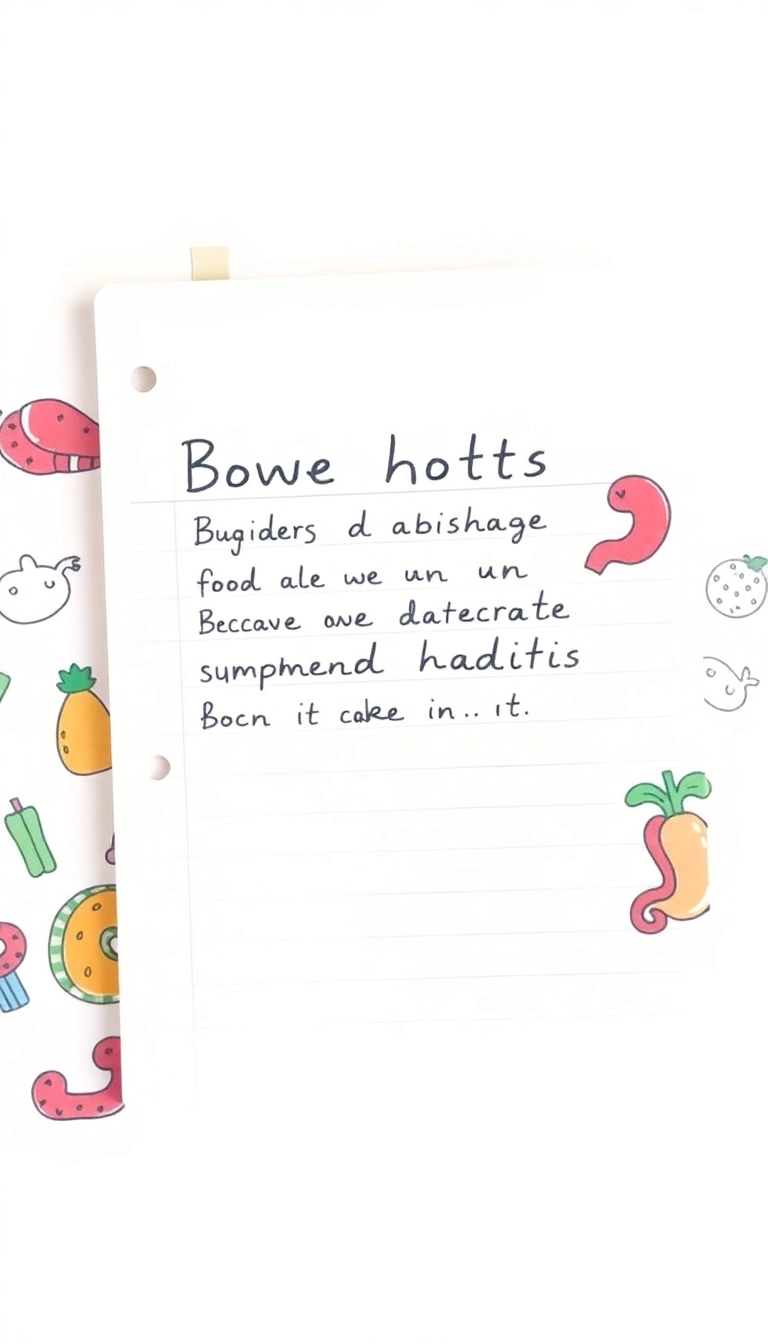 Bowe hotts
Bugiders d abishage
food ale we un un
Beccave owe datecrate
sumpmend haditis
Bocn it cake in.. it.